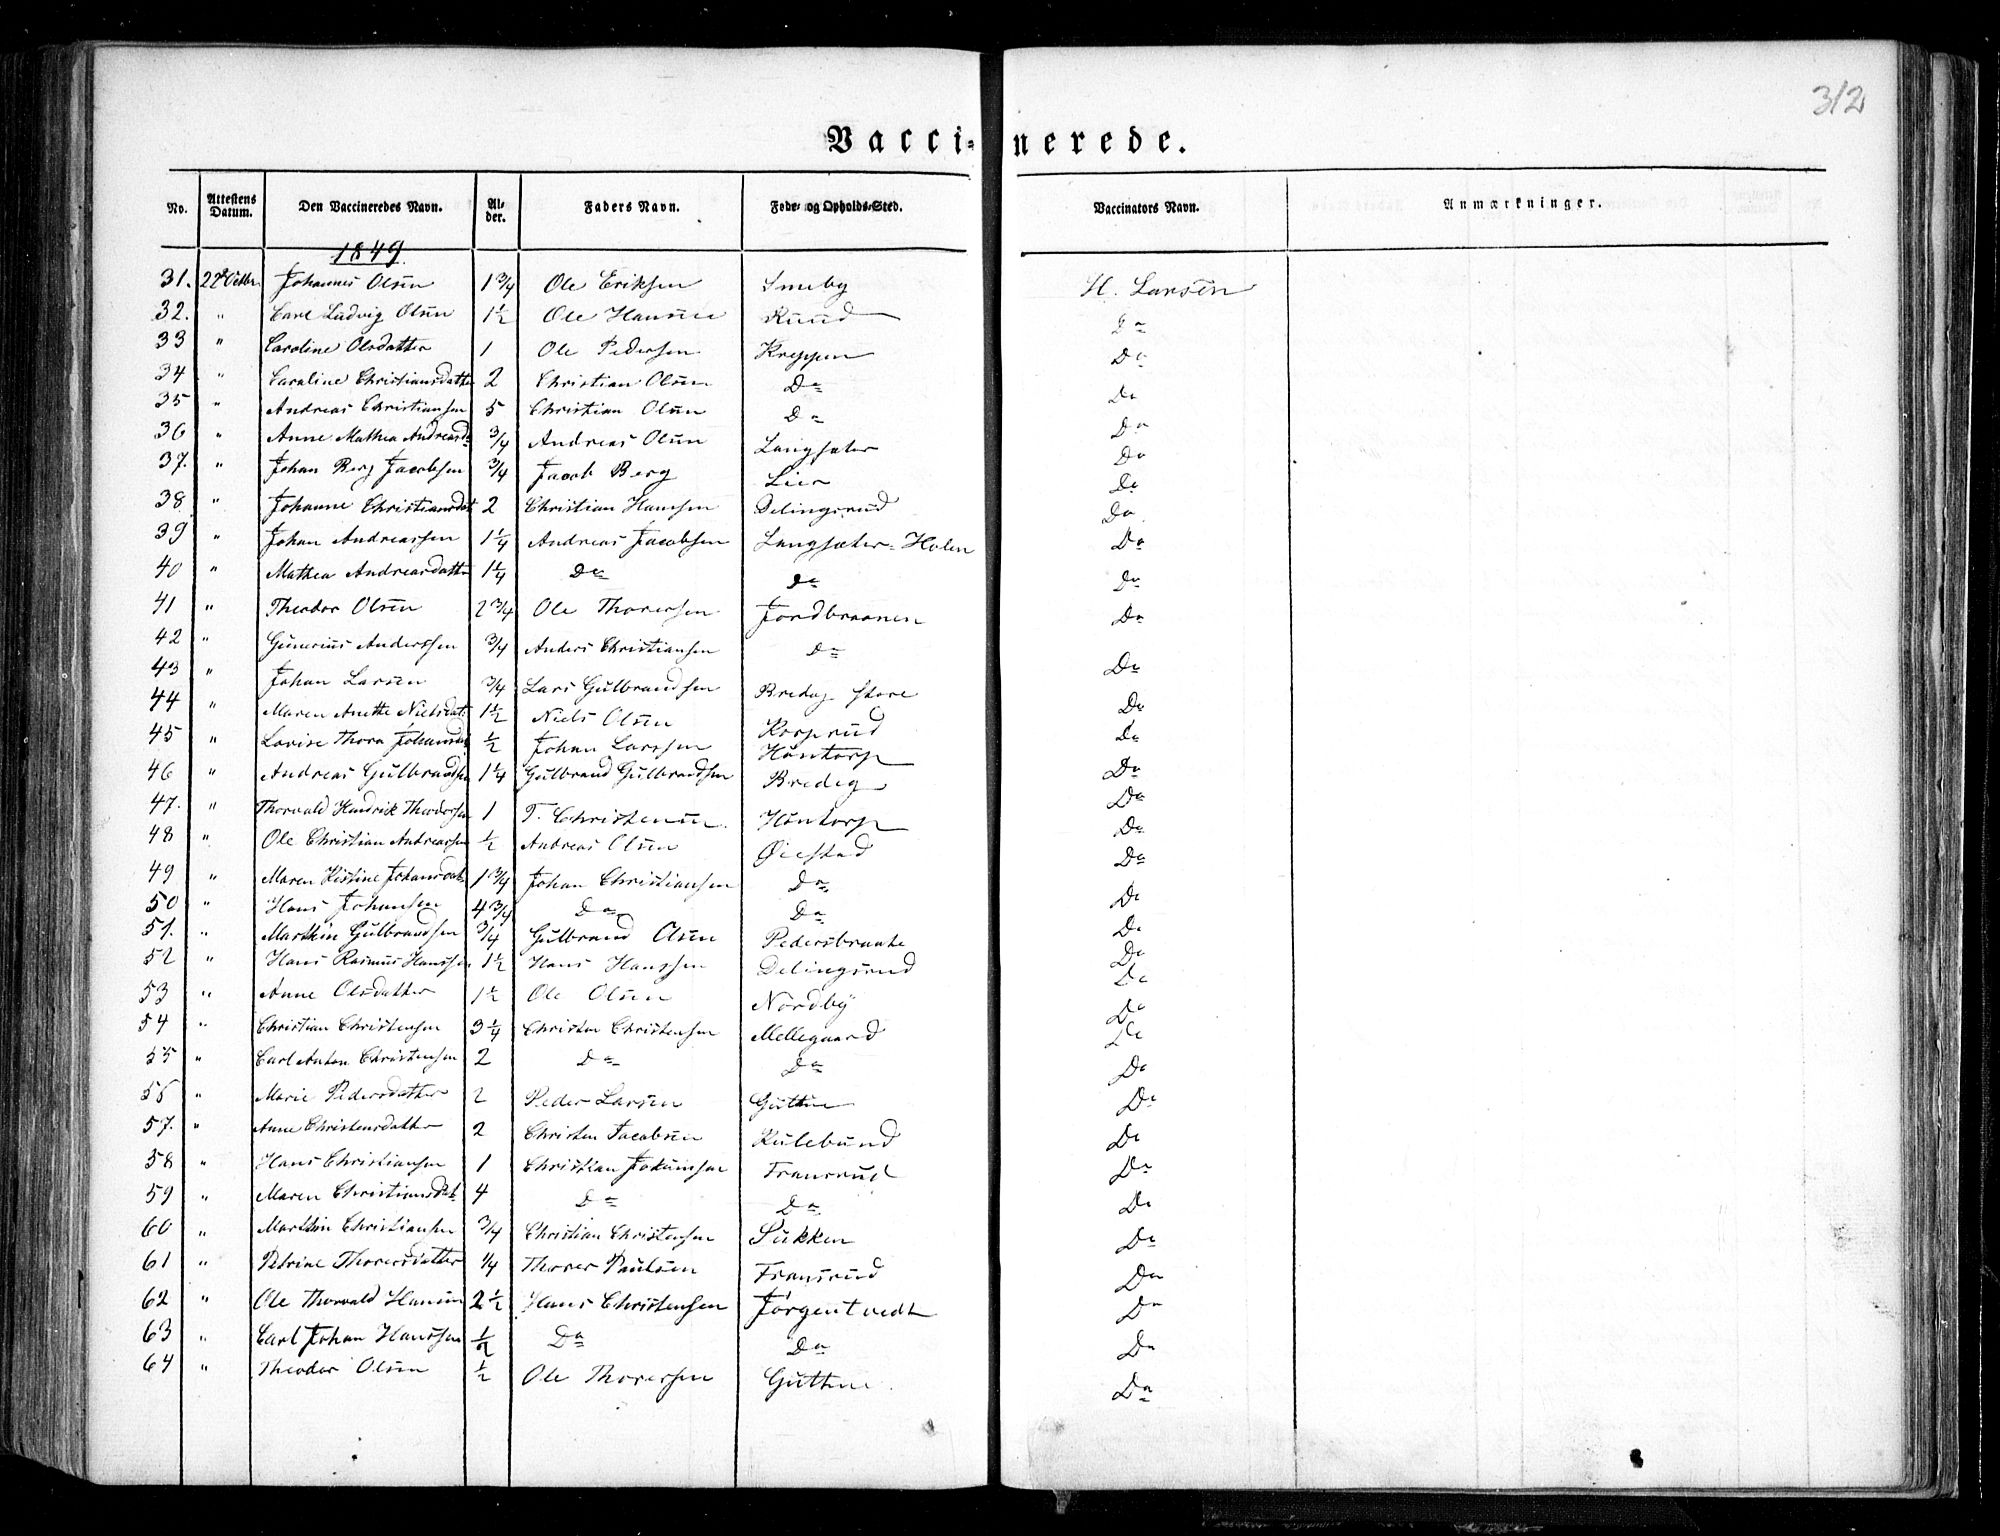 312
Vaccinerede.
No. Attestens Datum. Den Vaccineredes Navn. Alder. Faders Navn. Føde- og Opholds-Sted. Vaccinators Navn. Anmærkninger.
1849.
31. 22 Octbr. Johannes Olsen 1 3/4 Ole Eriksen Smeby H. Larsen
32. " Carl Ludvig Olsen 1 1/2 Ole Hansen Ruud Do
33 " Caroline Olsdatter 1 Ole Pedersen Kreppen Do
34 " Caroline Christiansdatter 2 Christian Olsen Do Do
35 " Andreas Christiansen 5 Christian Olsen Do Do
36 " Anne Mathea Andreasd. 3/4 Andreas Olsen Langsæter Do
37. " Johan Berg Jacobsen 3/4 Jacob Berg Lier Do
38 " Johanne Christiansdat 2 Christian Hanssen Delingsrud Do
39 " Johan Andreassen 1 1/4 Andreas Jacobsen Langsæter-Holen Do
40 " Mathea Andreasdatter 1 1/4 Do Do Do
41 " Theodor Olsen 2 3/4 Ole Thoresen Jordbraanen Do
42 " Gunerius Anderssen 3/4 Anders Christiansen Do Do
43 " Johan Larsen 3/4 Lars Gulbrandsen Bredeg store Do
44 " Maren Anette Nielsdat: 1 1/2 Niels Olsen Korperud Do
45 " Lovise Thora Johansdat 1/2 Johan Larssen Huntorp Do
46 " Andreas Gulbrandsen 1 1/4 Gulbrand Gulbrandsen Bredeg Do
47. " Thorvald Hendrik Theodorsen 1 T. Christensen Huntorp Do
48 " Ole Christian Andreassen 1/2 Andreas Olsen Øiestad Do
49 " Maren Kistine Johansdat 1 3/4 Johan Christiansen Do Do
50 " Hans Johansen 4 3/4 Do Do Do
51. " Marthin Gulbrandsen 3/4 Gulbrand Olsen Pedersbraate Do
52 " Hans Rasmus Hanssen 1 1/2 Hans Hanssen Delingsrud Do
53 " Anne Olsdatter 1 1/2 Ole Olsen Nordby Do
54 " Christian Christensen 3 1/4 Christen Christensen Mellegaard Do
55 " Carl Anton Christensen 2 Do Do Do
56 " Marie Pedersdatter 2 Peder Larsen Guttue Do
57. " Anne Christensdatter 2 Christen Jacobsen Kulebund Do
58 " Hans Christiansen 1 Christian Fransrud Do
59 " Maren Christiansdat. 4 Do Do Do
60 " Marthin Christiansen 3/4 Christian Christensen Sukken Do
61 " Petrine Thoresdatter 1/4 Thorer Paulsen Fransrud Do
62 " Ole Thorvald Hansen 2 1/2 Hans Christensen Jørgentvedt Do
63 " Carl Johan Hanssen 1/2 Do Do Do
64 " Theodor Olsen 1/2 Ole Thoresen Guttue Do